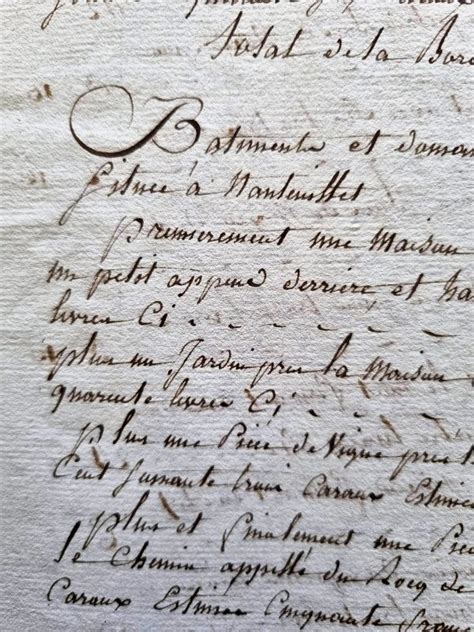 Total de la Bor
Batiments et domai
Située à Nanteuillet
premierement une Maison
un petit append derriere et
livres Ci - - - - - -
plus un Jardin pres la Maison
quarente livres Ci - - -
plus une Piéce de Vigne pres
Cent soixante trois Caraux Estimée
plus et finalement une Pié
le Chemin appellé du Rocq de
Caraux Estimée Cinquante fran